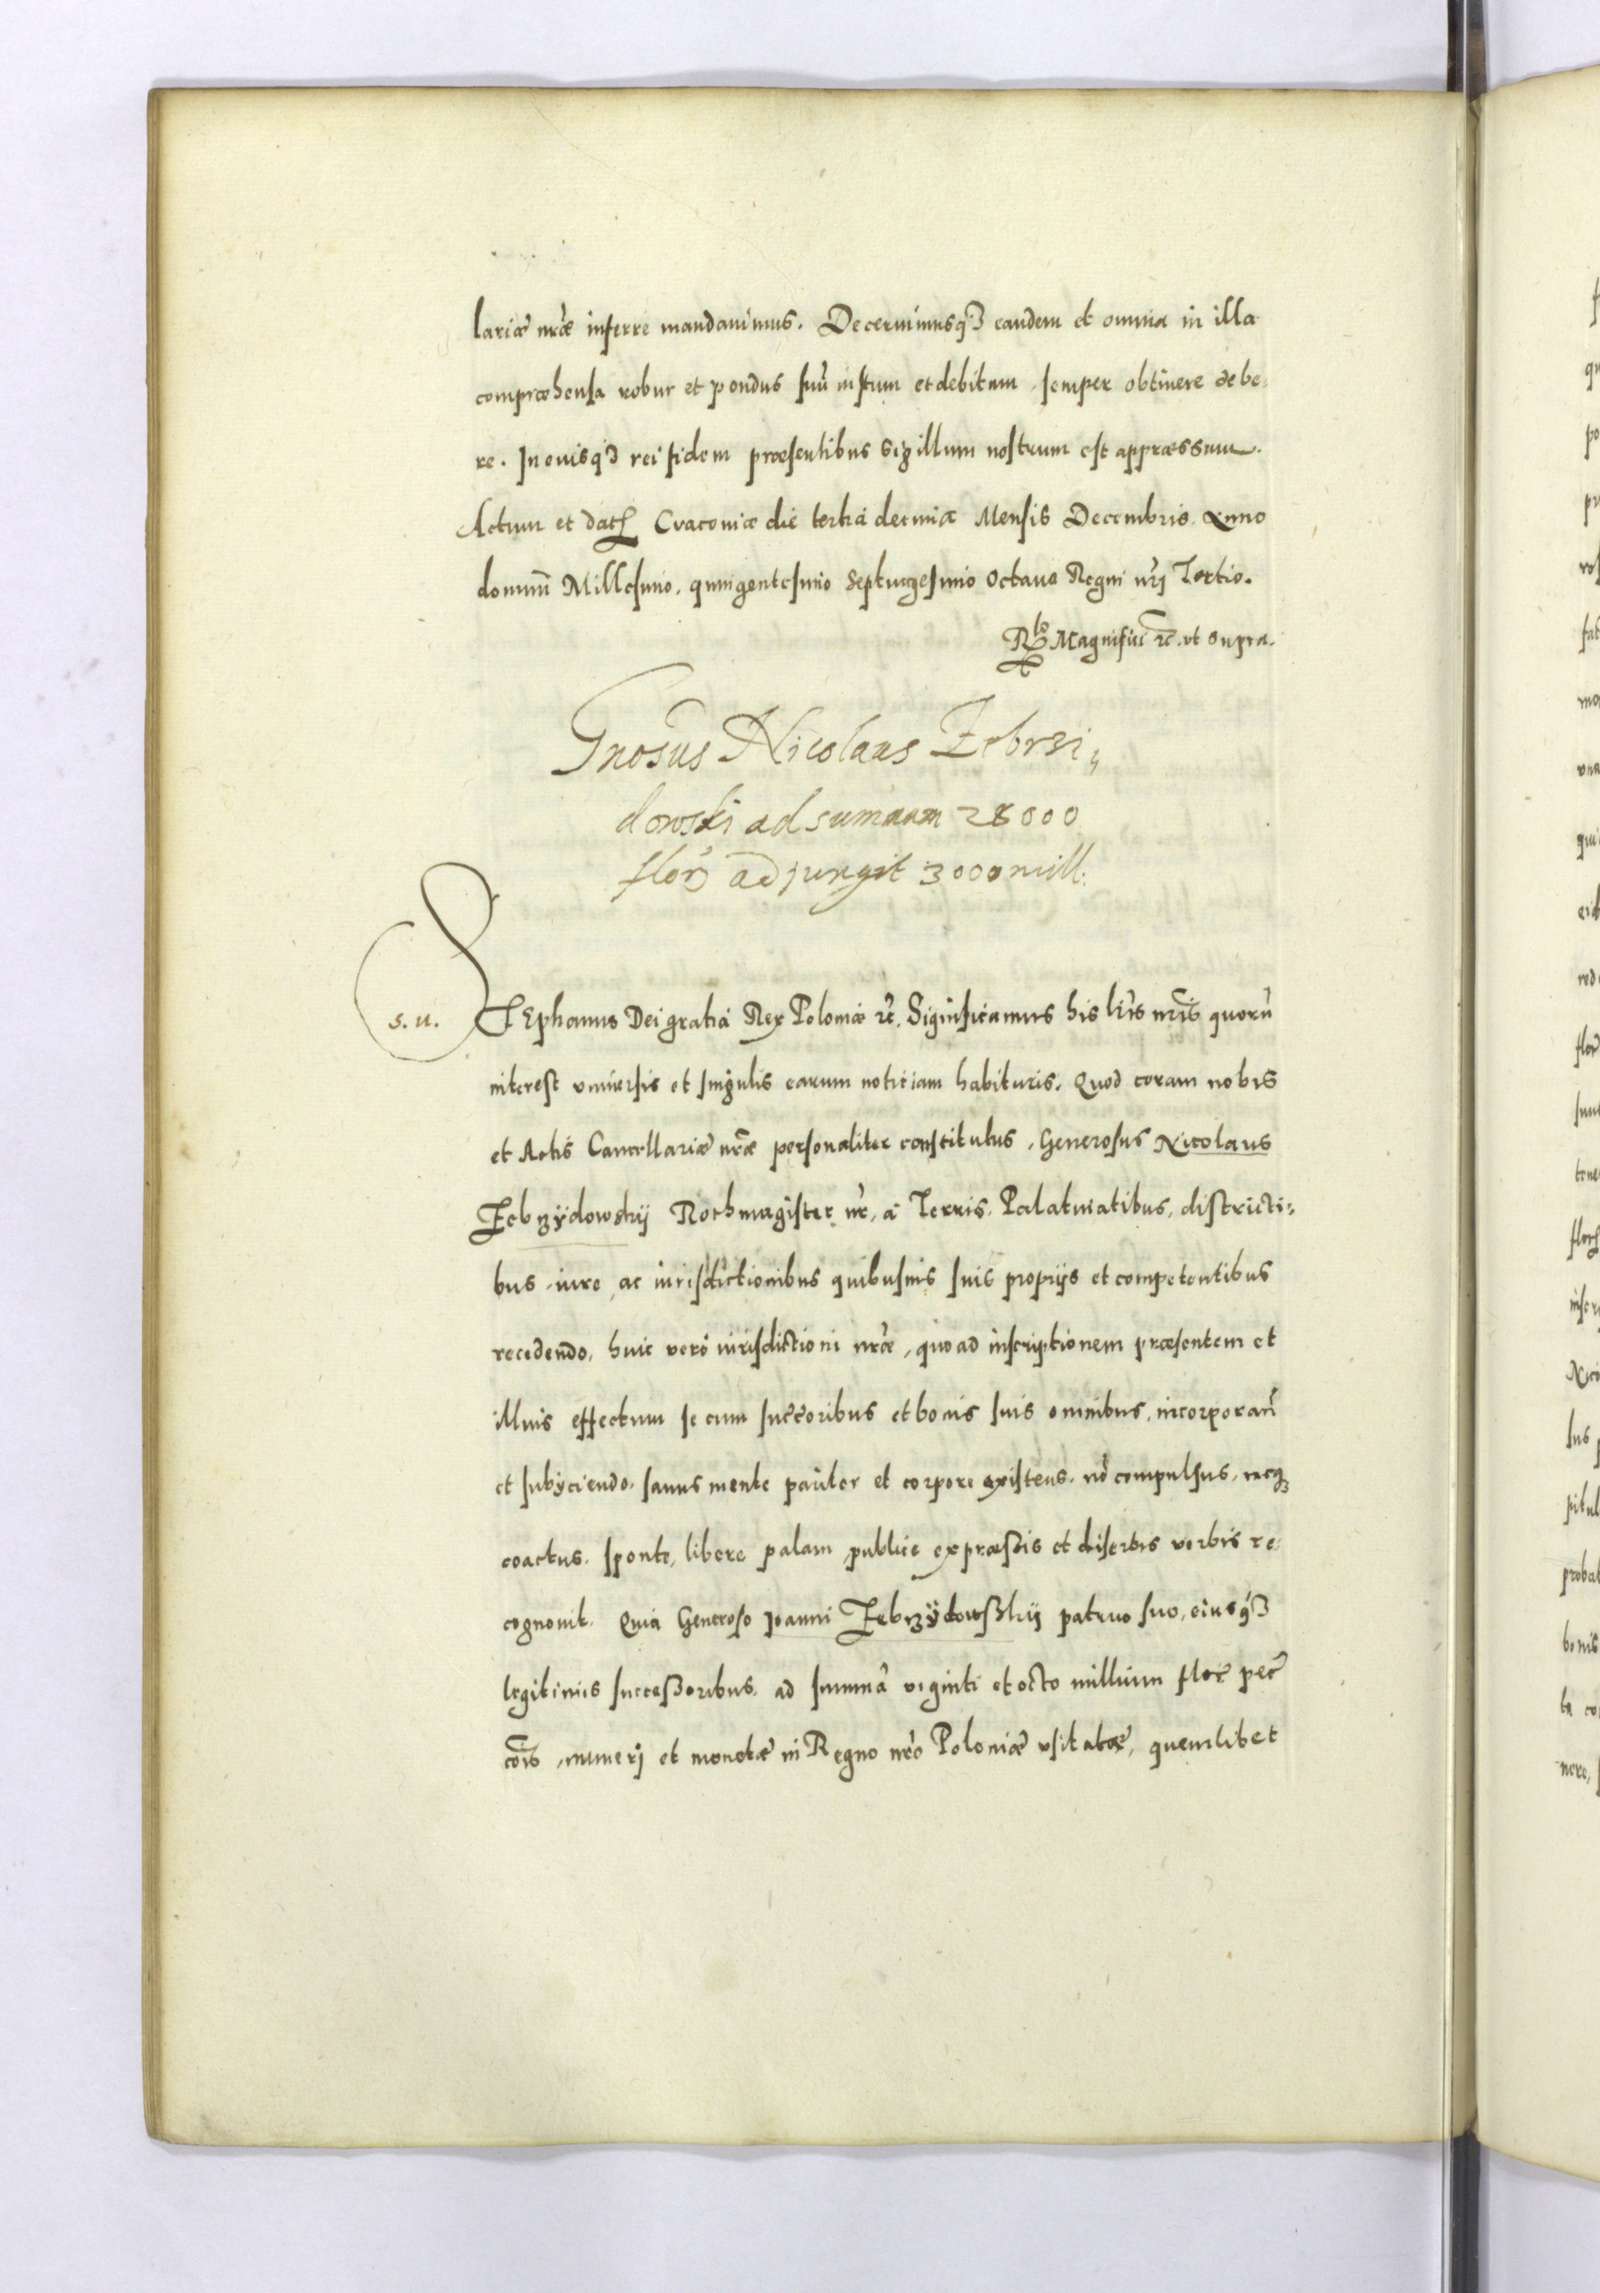 lariæ nr̃æ inferre mandauimus. Decernimusqꝫ eandem et omnia in illa
compræhensa robur et pondus suũ iustum et debitum semper obtinere debe,
re. In cuiusqꝫ rei fidem præsentibus sigillum nostrum est appræssum.
Actum et dat̃ Cracouiæ die tertia decima Mensis Decembris. Anno
domini Millesimo, quingentesimo Septuagesimo Octauo Regni nr̃j Tertio.
Rlo Magnifici ꝛc̃. vt supra.
Gnosus Nicolaus Zebrzi,
dowski ad sumam 28000
flor̃ adjungit 3000 mill.
s. u.
STEphanus Dei gratia Rex Poloniæ ꝛc̃. Significamus his lr̃is nr̃is quorũ
interest vniuersis et singulis earum notitiam habituris. Quod coram nobis
et Actis Cancellariæ nr̃æ personaliter constitutus, Generosus Nicolaus
Zebrzÿdowskij Rothmagister nr̃, à Terris, Palatinatibus, districti:
bus iure, ac iurisdictionibus quibusuis suis proprijs et competentibus
recedendo, huic verò iurisdictioni nr̃æ, quoad inscriptionem præsentem et
illius effectum se cum succ̃oribus et bonis suis omnibus, incorporañ
et subijciendo, sanus mente pariter et corpore existens, nõ compulsus, necqꝫ
coactus, sponte, libere palam publice expræssis et disertis verbis re,
cognouit. Quia Generoso Joanni Zebrzÿdowskij patruo suo, eiusqꝫ
legitimis successoribus, ad summã viginti et octo millium flor̃ pec̃
cõis, numerj et monetæ in Regno nr̃o Poloniæ vsitatæ, quemlibet